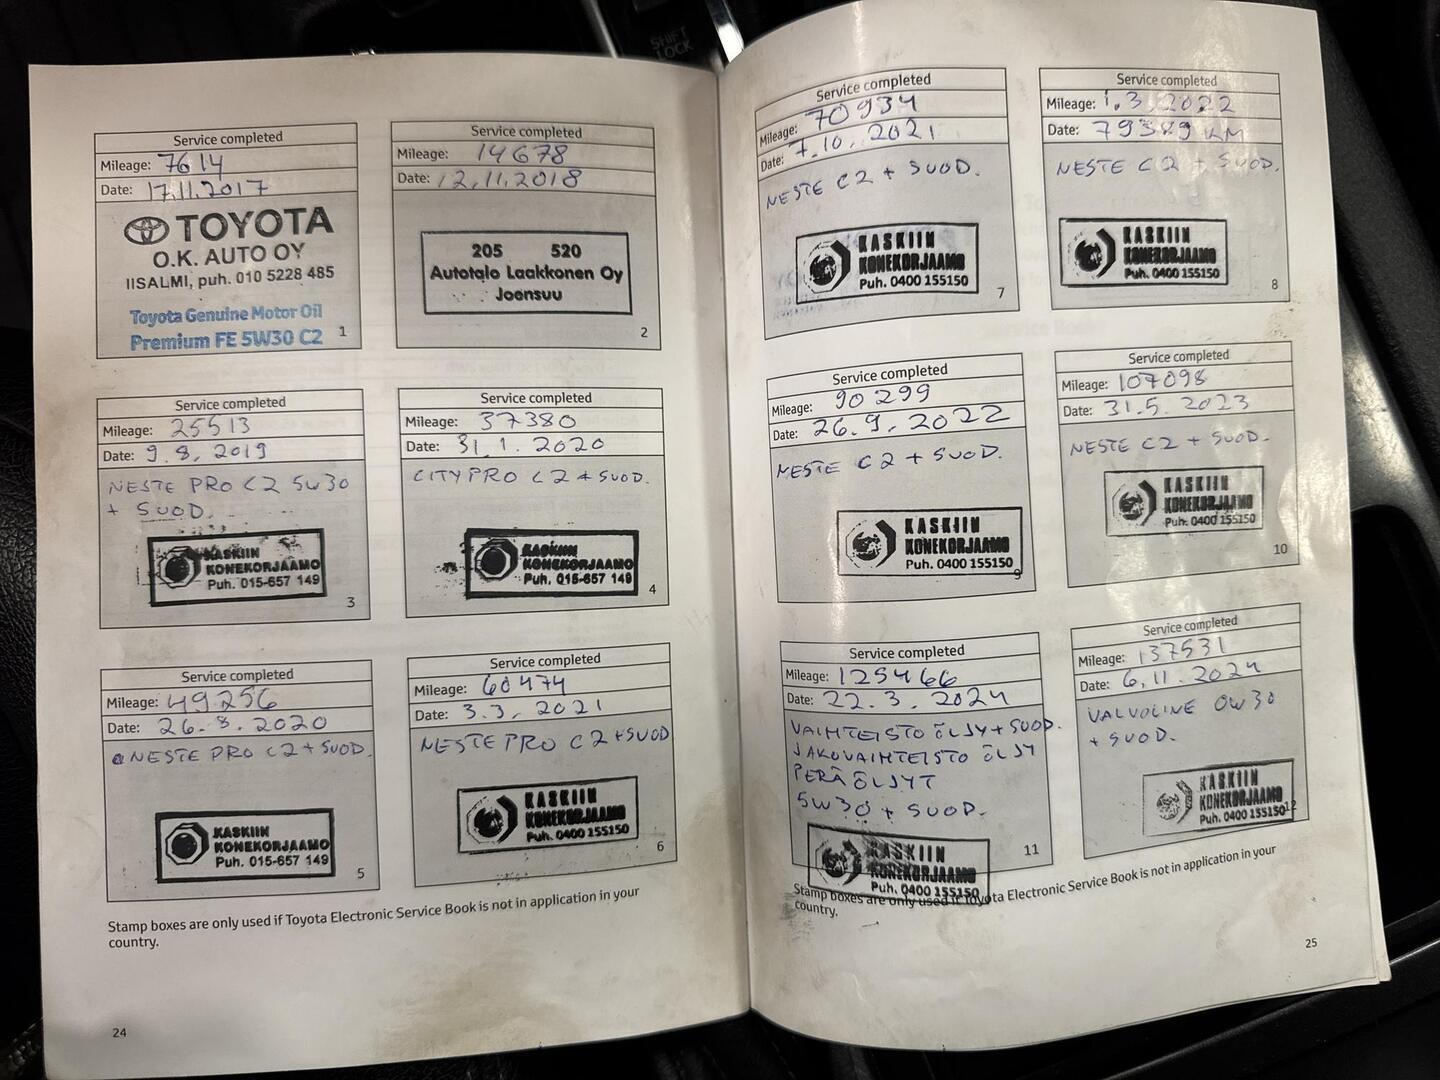 SHIFT
LOCK
Service completed
Mileage: 7614
Date: 17.11.2017
TOYOTA
O.K. AUTO OY
IISALMI, puh. 010 5228 485
Toyota Genuine Motor Oil
Premium FE 5W30 C2
1
Service completed
Mileage: 14678
Date: 12.11.2018
205 520
Autotalo Laakkonen Oy
Joensuu
2
Service completed
Mileage: 25513
Date: 9.8.2019
NESTE PRO C2 5W30
+ SUOD.
KASKIIN
KONEKORJAAMO
Puh. 015-657 149
3
Service completed
Mileage: 37380
Date: 31.1.2020
CITYPRO C2 + SUOD.
KASKIIN
KONEKORJAAMO
Puh. 015-657 149
4
Service completed
Mileage: 49256
Date: 26.8.2020
NESTE PRO C2 + SUOD.
KASKIIN
KONEKORJAAMO
Puh. 015-657 149
5
Service completed
Mileage: 60474
Date: 3.3.2021
NESTE PRO C2 + SUOD
KASKIIN
KONEKORJAAMO
Puh. 0400 155150
6
Stamp boxes are only used if Toyota Electronic Service Book is not in application in your
country.
24
Service completed
Mileage: 70934
Date: 7.10.2021
NESTE C2 + SUOD.
KASKIIN
KONEKORJAAMO
Puh. 0400 155150
7
Service completed
Mileage: 1.3.2022
Date: 79389 KM
NESTE C2 + SUOD.
KASKIIN
KONEKORJAAMO
Puh. 0400 155150
8
Service completed
Mileage: 90299
Date: 26.9.2022
NESTE C2 + SUOD.
KASKIIN
KONEKORJAAMO
Puh. 0400 155150
9
Service completed
Mileage: 107098
Date: 31.5.2023
NESTE C2 + SUOD.
KASKIIN
KONEKORJAAMO
Puh. 0400 155150
10
Service completed
Mileage: 125466
Date: 22.3.2024
VAIHTEISTO ÖLJY + SUOD.
JAKOVAIHTEISTO ÖLJY
PERÄ ÖLJYT
5W30 + SUOD.
KASKIIN
KONEKORJAAMO
Puh. 0400 155150
11
Service completed
Mileage: 137531
Date: 6.11.2024
VALVOLINE 0W30
+ SUOD.
KASKIIN
KONEKORJAAMO
Puh. 0400 155150
12
Stamp boxes are only used if Toyota Electronic Service Book is not in application in your
country.
25